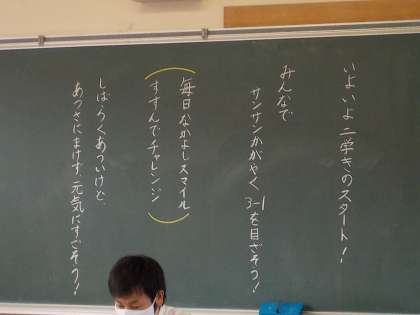 いよいよ二学きのスタート!
みんなで
サンサンかがやく3-1を目ざそう!
毎日なかよしスマイル
すすんでチャレンジ
しばらくあついけど、
あつさにまけず、元気にすごそう!